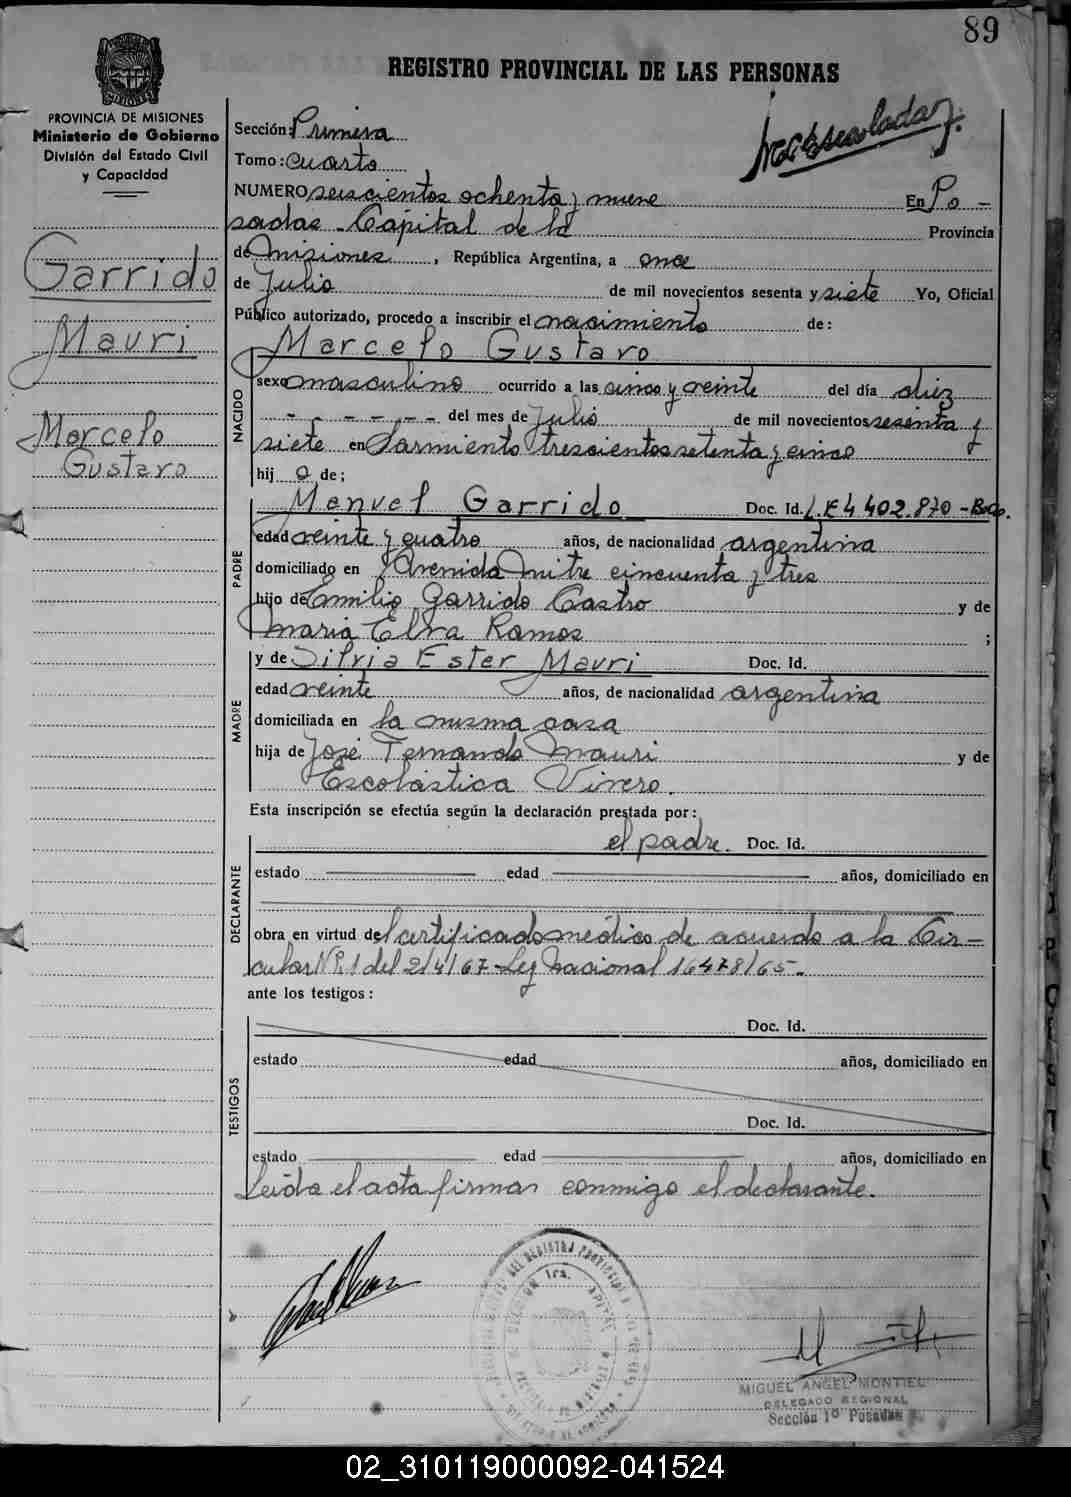 89
REGISTRO PROVINCIAL DE LAS PERSONAS
PROVINCIA DE MISIONES
Ministerio de Gobierno
División del Estado Civil
y Capacidad
Garrido
Mauri
Marcelo
Gustavo
Sección: Primera
Tomo: cuarto
NUMERO seiscientos ochenta y nueve En Po-
sadas - Capital de la Provincia
de Misiones, República Argentina, a once
de Julio de mil novecientos sesenta y siete Yo, Oficial
Público autorizado, procedo a inscribir el nacimiento de:
Marcelo Gustavo
NACIDO
sexo masculino ocurrido a las cinco y veinte del día diez
- - - - - - del mes de Julio de mil novecientos sesenta y
siete en Sarmiento trescientos setenta y cinco
hij o de;
PADRE
Manuel Garrido Doc. Id. L.E 4 402.870
edad veinte y cuatro años, de nacionalidad argentina
domiciliado en Avenida Mitre cincuenta y tres
hijo de Emilio Garrido Castro y de
Maria Elva Ramos ;
MADRE
y de Silvia Ester Mauri Doc. Id.
edad veinte años, de nacionalidad argentina
domiciliada en la misma casa
hija de José Fernando Mauri y de
Escolástica Vivero.
Esta inscripción se efectúa según la declaración prestada por:
el padre. Doc. Id.
DECLARANTE
estado edad años, domiciliado en
obra en virtud del certificado médico de acuerdo a la Cir-
cular Nº 1 del 2/4/67 - Ley Nacional 16478/65.-
ante los testigos:
TESTIGOS
Doc. Id.
estado edad años, domiciliado en
Doc. Id.
estado edad años, domiciliado en
Leída el acta firman conmigo el declarante.
MIGUEL ANGEL MONTIEL
DELEGADO REGIONAL
Sección 1º Posadas
02_310119000092-041524